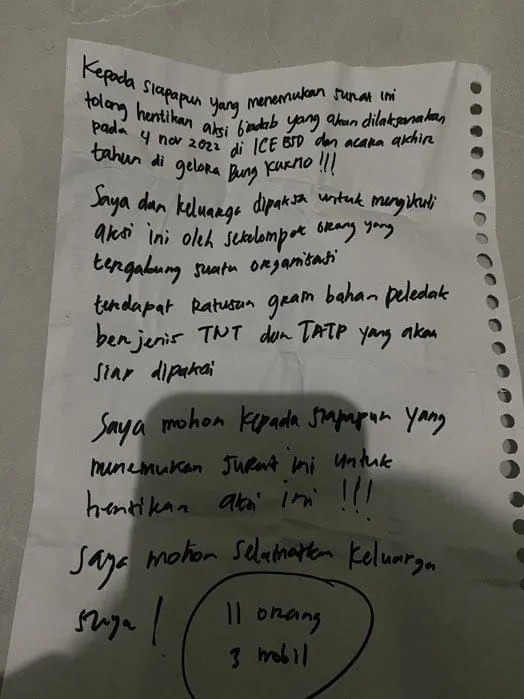 Kepada siapapun yang menemukan surat ini
tolong hentikan aksi biadab yang akan dilaksanakan
pada 4 nov 2022 di ICE BSD dan acara akhir
tahun di gelora Bung Karno !!!
Saya dan keluarga dipaksa untuk mengikuti
aksi ini oleh sekelompok orang yang
tergabung suatu organisasi
terdapat Ratusan gram bahan peledak
berjenis TNT dan TATP yang akan
siap dipakai
Saya mohon kepada siapapun yang
menemukan surat ini untuk
hentikan aksi ini !!!
Saya mohon selamatkan keluarga
saya !
11 orang
3 mobil